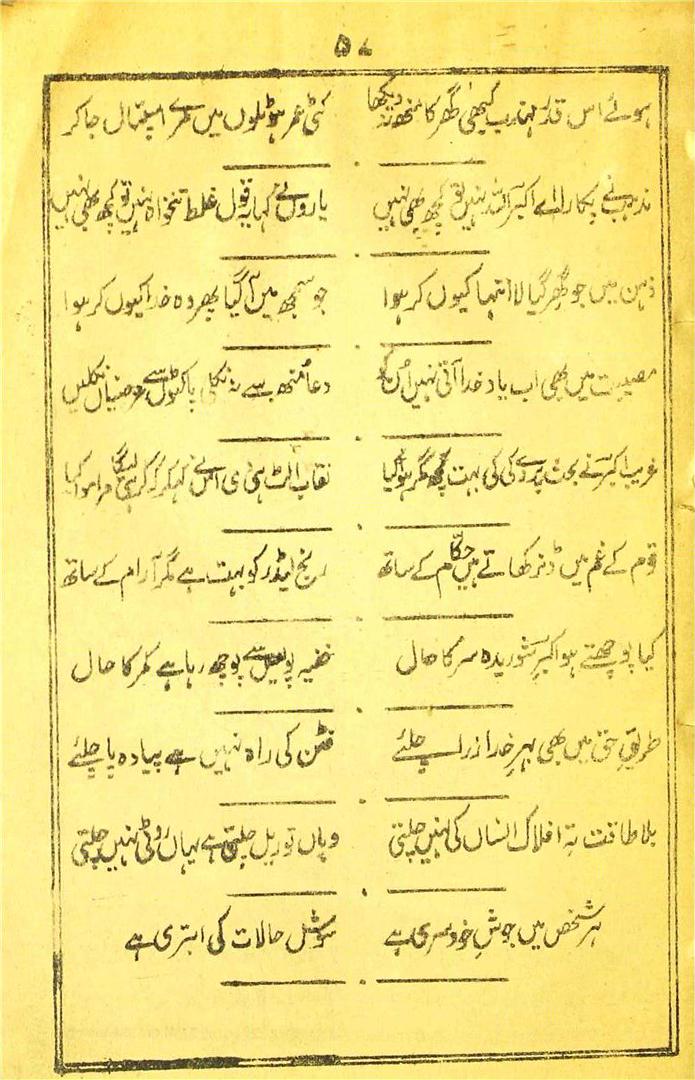 ۵۷
ہوئے اس قدر مہذب کبھی گھر کا منھ نہ دیکھا کٹی عمر ہوٹلوں میں مرے اسپتال جا کر
مذہب نے پکارا اے اکبر اللہ نہیں تو کچھ بھی نہیں یاروں نے کہا یہ قول غلط تنخواہ نہیں تو کچھ بھی نہیں
ذہن میں جو گھر گیا لا انتہا کیوں کر ہوا جو سمجھ میں آ گیا پھر وہ خدا کیوں کر ہوا
مصیبت میں بھی اب یاد خدا آتی نہیں اُن کو دعا منھ سے نہ نکلی پاکٹوں سے عرضیاں نکلیں
غریب اکبر نے بحث پردے کی کی بہت کچھ مگر ہوا کیا نقاب الٹ ہی دی اس نے کہکر کہ کر ہی لیگا مرا موا کیا
قوم کے غم میں ڈنر کھاتے ہیں حکام کے ساتھ رنج لیڈر کو بہت ہے مگر آرام کے ساتھ
کیا پوچھتے ہو اکبر شوریدہ سر کا حال خفیہ پولیس سے پوچھ رہا ہے کمر کا حال
طریق حق میں بھی بہر خدا ذرا چلئے فٹن کی راہ نہیں ہے پیادہ پا چلئے
بلا طاقت تہ افلاک انساں کی نہیں چلتی وہاں تو ریل چلتی ہے یہاں روٹی نہیں چلتی
ہر شخص میں جوش خود سری ہے سوشل حالات کی ابتری ہے